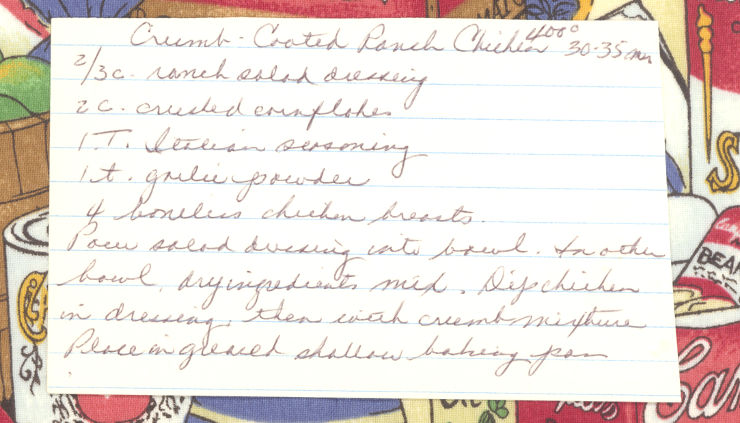 Crumb-Coated Ranch Chicken 400° 30-35 min
2/3 c. ranch salad dressing
2 c. crushed cornflakes
1 T. Italian seasoning
1 t. garlic powder
4 boneless chicken breasts.
Pour salad dressing into bowl. In other
bowl, dry ingredients mix. Dip chicken
in dressing, then with crumb mixture
Place in greased shallow baking pan
BEA
S